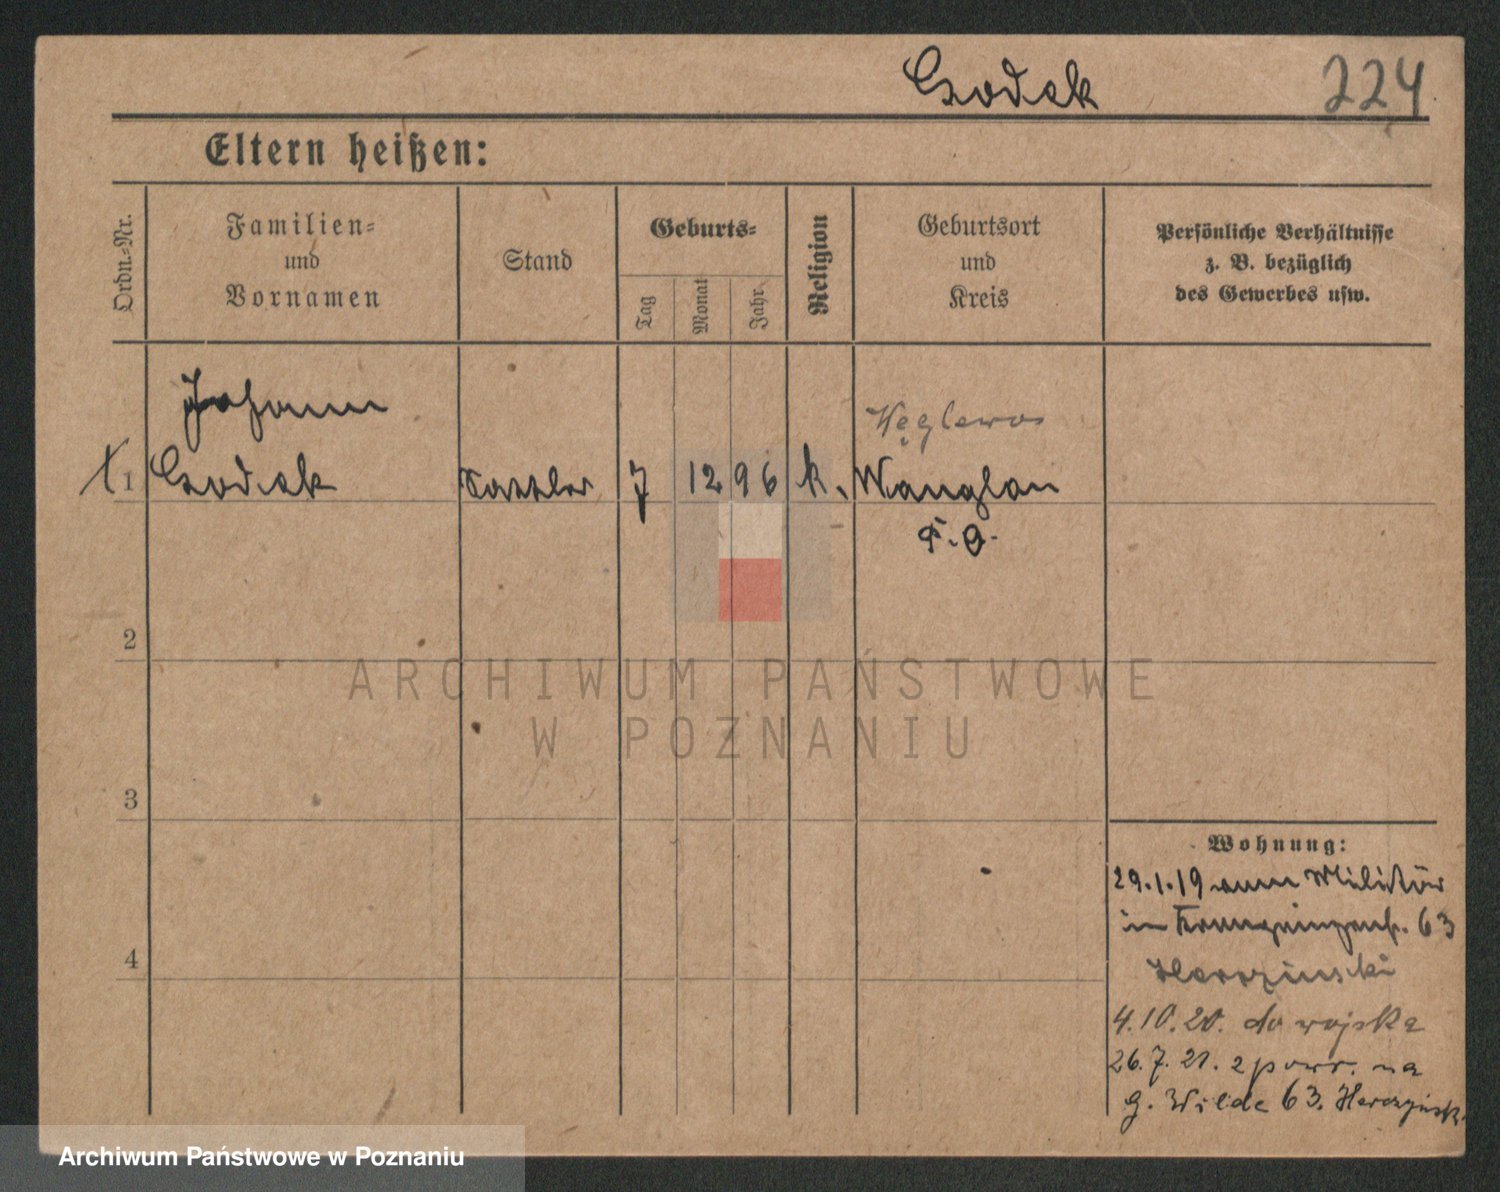 Czodek 224
Eltern heißen:
Ordn.-Nr.
Familien-
und
Vornamen
Stand
Geburts-
Tag
Monat
Jahr
Religion
Geburtsort
und
Kreis
Persönliche Verhältnisse
z. B. bezüglich
des Gewerbes usw.
Johann
Węglewo
1 Czodek Sattler 7 12 96 k. Wenglau
P. O.
2
3
4
Wohnung:
29.1.19 vom Militär
in Kronprinzenstr. 63
4.10.20. do wojska
26.7.21. z powr. na
G. Wilde 63.
ARCHIWUM PAŃSTWOWE
W POZNANIU
Archiwum Państwowe w Poznaniu